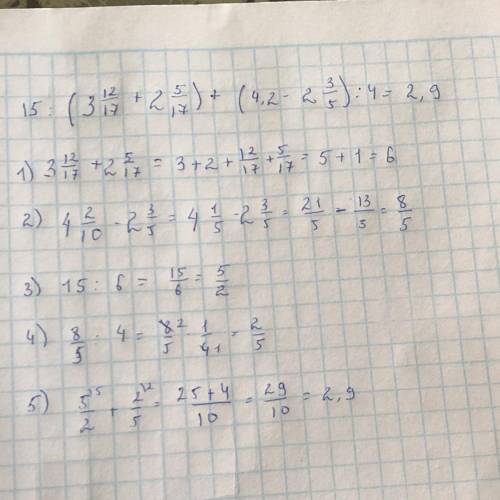 15 : (3 12/17 + 2 5/17) + (4,2 - 2 3/5) : 4 = 2,9
1) 3 12/17 + 2 5/17 = 3 + 2 + 12/17 + 5/17 = 5 + 1 = 6
2) 4 2/10 - 2 3/5 = 4 1/5 - 2 3/5 = 21/5 - 13/5 = 8/5
3) 15 : 6 = 15/6 = 5/2
4) 8/5 : 4 = 8²/5 · 1/4₁ = 2/5
5) 5/2 ⁵ + 2/5 ² = 25+4/10 = 29/10 = 2,9